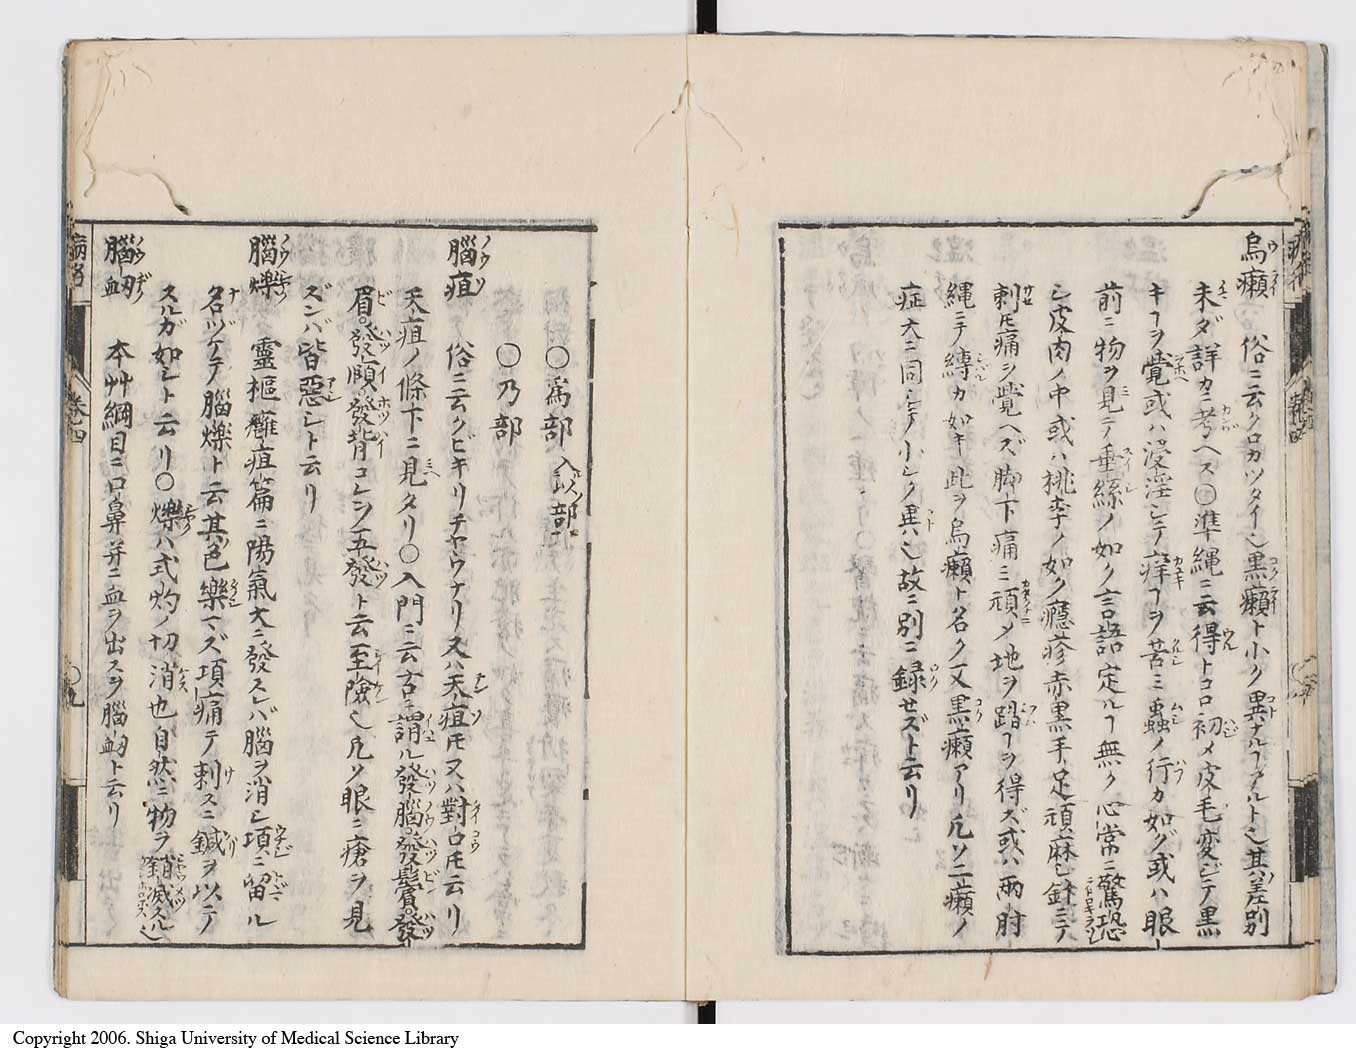 烏癩 俗ニ云クロカツタイ也黒癩ト小ク異ナルヿアルト也其差別
未ダ詳カニ考ヘス○準縄ニ云得トコロ初メ皮毛変ジテ黒
キヿヲ覚或ハ浸淫シテ痒ヿヲ苦ミ蟲ノ行カ如グ或ハ眼
前ニ物ヲ見テ垂絲ノ如ク言語定ルヿ無ク心常ニ驚恐
シ皮肉ノ中或ハ桃李ノ如ク癮疹赤黒手足頑麻シ針ニテ
刺𪜈痛ヲ覚ヘズ脚下痛ミ頑メ地ヲ踏ヿヲ得ズ或ハ両肘
縄ニテ縛カ如キ此ヲ烏癩ト名ク又黒癩アリ凡ソ二癩ノ
症大ニ同シテ小シク異也故ニ別ニ録セズト云リ
○爲部 入以部
○乃部
腦疽 俗ニ云クビキリチヤウナリ又ハ天疽𪜈又ハ對口𪜈云リ
天疽ノ條下ニ見タリ○入門ニ云古ニ謂ル發腦。發鬢。發
眉。發頤。發背コレヲ五發ト云至險也凡ソ眼ニ瘡ヲ見
ズンバ皆惡シト云リ
腦爍 靈樞癰疽篇ニ陽氣大ニ發スレバ腦ヲ消シ項ニ留ル
名ヅケテ腦爍ト云其色樂マズ項痛テ刺スニ鍼ヲ以テ
スルガ如シト云リ○爍ハ式灼ノ切消也自然ニ物ヲ銷滅スル也
腦衂 本艸綱目ニ口鼻并ニ血ヲ出スヲ腦衂ト云リ
巻四
○九
Copyright 2006. Shiga University of Medical Science Library